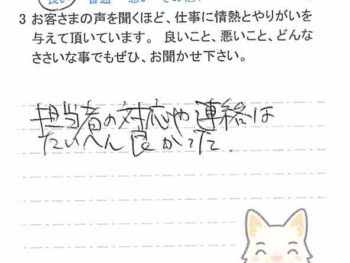 3 お客さまの声を聞くほど、仕事に情熱とやりがいを
与えて頂いています。 良いこと、悪いこと、どんな
ささいな事でもぜひ、お聞かせ下さい。
担当者の対応や連絡は
たいへん良かったで